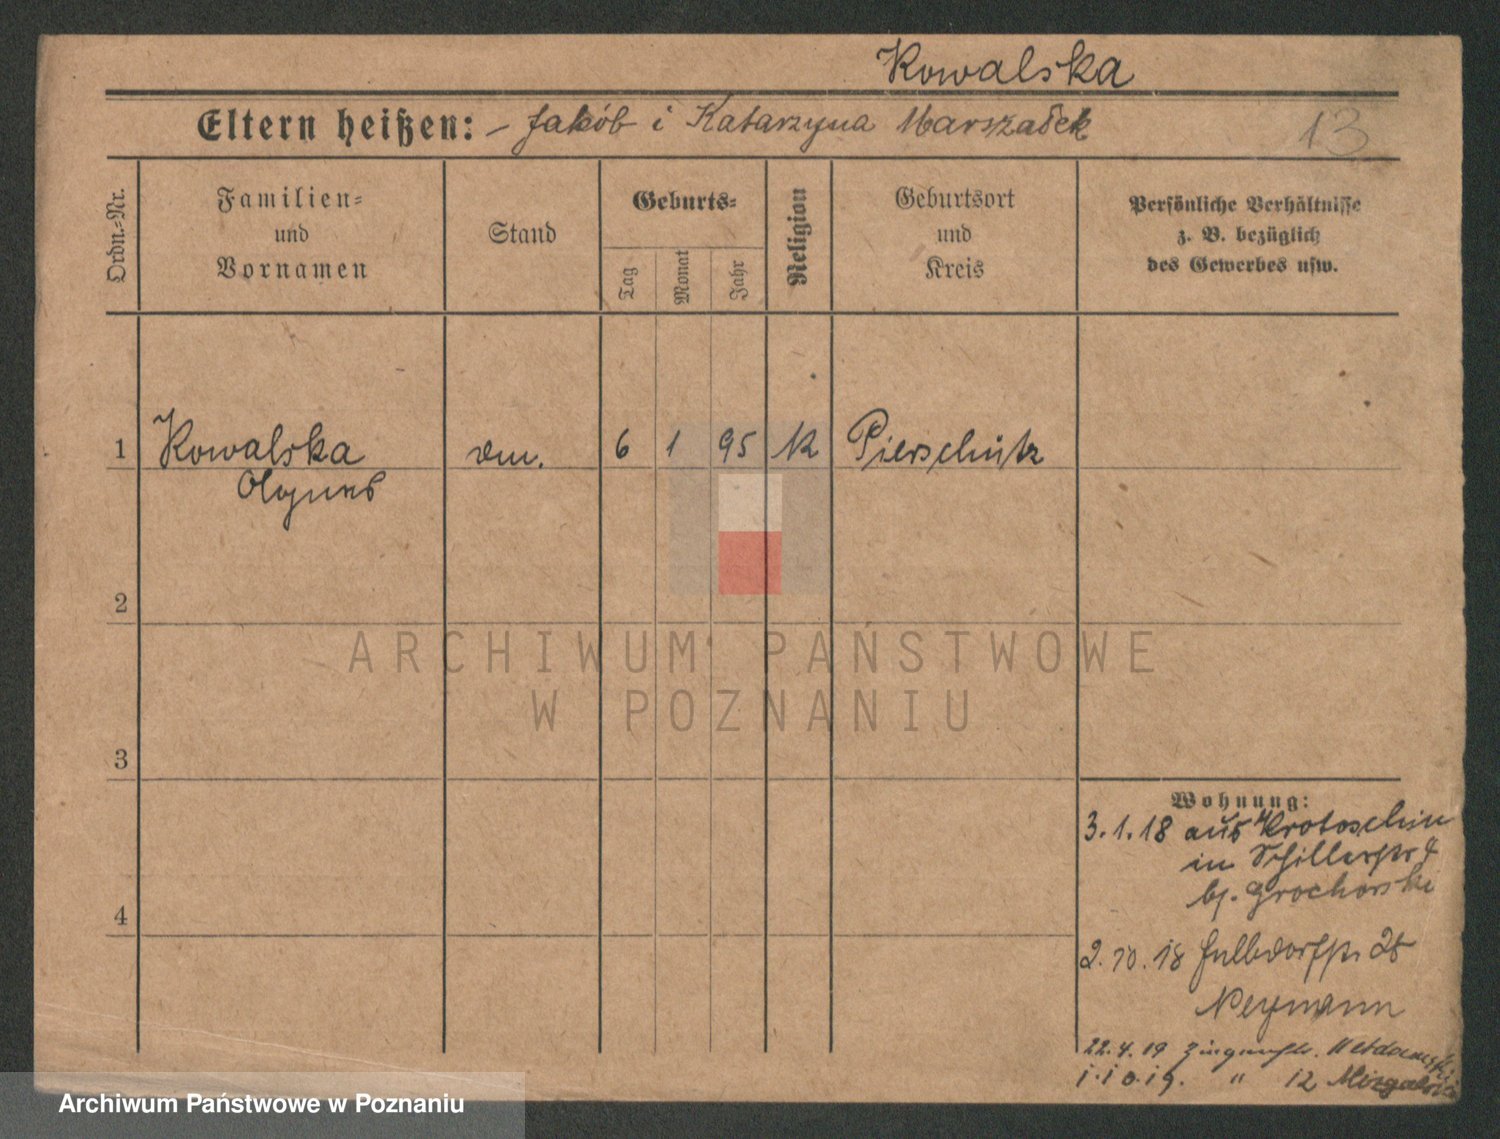 Kowalska
Eltern heißen: – Jakób i Katarzyna Marszałek
13
Ordn.-Nr.
Familien-
und
Vornamen
Stand
Geburts-
Tag
Monat
Jahr
Religion
Geburtsort
und
Kreis
Persönliche Verhältnisse
z. B. bezüglich
des Gewerbes usw.
1 Kowalska 6 1 95 K Pierschütz
Agnes
2
ARCHIWUM PAŃSTWOWE
W POZNANIU
3
Wohnung:
3.1.18 aus Krotoschin
in Schillerstr
bj. Grochowski
4
2.10.18
Neymann
22.4.19
1.10.19. " 12
Archiwum Państwowe w Poznaniu